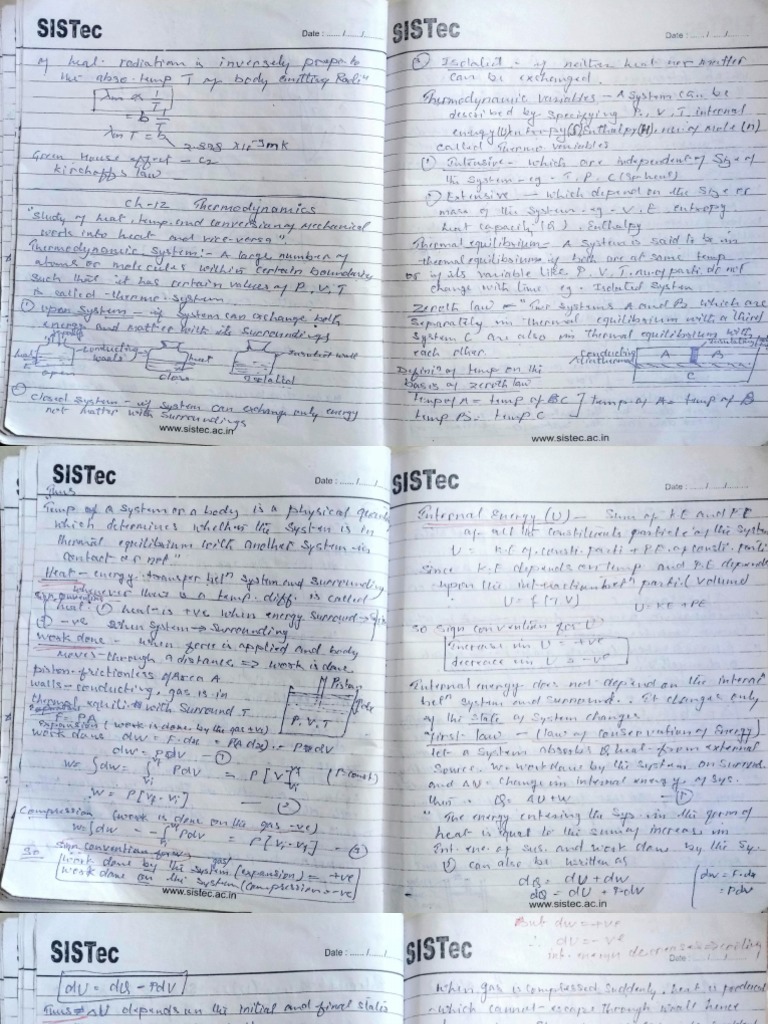 SISTec
Date : ....... /....... /.......
of heat radiation is inversely
the abso. temp T of body emitting
λm T = b
2.898 ×10⁻³mK
Green House effect
Kirchoffs law
Ch-12 Thermodynamics
"Study of heat, temp. and conversion of Mechanical
work into heat and vice-versa".
Thermodynamic System:- A large number of
atoms or molecules within certain boundaries
such that it has certain values of P, V, T
is called thermo. system
① open system - if system can exchange both
energy and matter with its surroundings
conducting walls
heat
insulat wall
open
close
isolated
② Closed system - if system can exchange only energy
not matter with surroundings
www.sistec.ac.in
SISTec
Date : ....... /....... /.......
③ Isolated - if neither heat nor matter
can be exchanged.
Thermodynamic variables - A system can be
described by specifying P, V, T, internal
energy(U) entropy(S), Enthalpy(H), no. of mole (n)
called thermo variables
① Intensive - which are independent of size of
the system - eg - T, P, C
② Extensive - which depend on the size or
mass of the system - eg - V, E entropy
heat capacity, Enthalpy
Thermal equilibrium - A system is said to be in
thermal equilibrium if both are at same temp
or if its variable like P, V, T, no. of parti. do not
change with time eg - Isolated system
Zeroth law - "Two systems A and B which are
separately in thermal equilibrium with a third
system C are also in thermal equilibrium with
each other.
conducting
A
B
C
of temp on the
basis of zeroth law
temp of A = temp of
temp B = temp C
temp of A = temp of B
www.sistec.ac.in
SISTec
Date : ....... /....... /.......
Thus
"Temp of a system or a body is a physical
which determines whether the system is in
thermal equilibrium with another system in
contact or not"
Heat - energy transfer betⁿ system and surrounding
whenever there is a temp. diff. is called
heat. ① heat is +ve when energy surround →
② -ve when system → surrounding
work done - when force is applied and body
moves through a distance ⇒ work is done
piston-frictionless of Area A
walls-conducting, gas is in
thermal equili with surround T
Piston
P, V, T
F = PA
expansion (work is done by the gas +ve)
work done dw = F.dx = P(A dx) = PdV
dw = PdV — ①
w = ∫dw = ∫ PdV = P[V] (P-const)
w = P[Vf - Vi] — ②
Compression (work is done on the gas -ve)
w = ∫dw = -∫ PdV = P[Vi - Vf] — ③
So Sign convention for w
work done by the system (expansion) = +ve
work done on the system (compression = -ve
www.sistec.ac.in
SISTec
Date : ....... /....... /.......
Internal Energy (U) - Sum of KE and PE
of all the constituents particle of the system
U = K.E of consti. parti + P.E of consti. parti
Since K.E depends on temp and P.E depends
upon the interaction betⁿ parti (volume)
U = f (T, V)
U = KE + PE
So sign convention for U
increase in U = +ve
decrease in U = -ve
Internal energy does not depend on the
betⁿ system and surround. It changes only
if the state of system changes
"first law - (law of conservation of Energy)
let a system absorbs Q heat from external
source. w = work done by the system on surround.
and ΔU = change in internal energy of sys.
then Q = ΔU + W — ①
" The energy entering the sys. in the form of
heat is equal to the sum of increase in
int. ene. of sys. and work done by the sys.
① can also be written as
dQ = dU + dw
dQ = dU + PdV
dw = F.dx
= PdV
www.sistec.ac.in
SISTec
Date : ....... /....... /.......
dU = dQ - PdV
Thus ΔU depends on the initial and final states
But dw = +ve
∴ dU = -ve
int. energy decreases ⇒ cooling
SISTec
Date : ....... /....... /.......
when gas is compressed suddenly, heat is produced
which cannot escape through wall hence